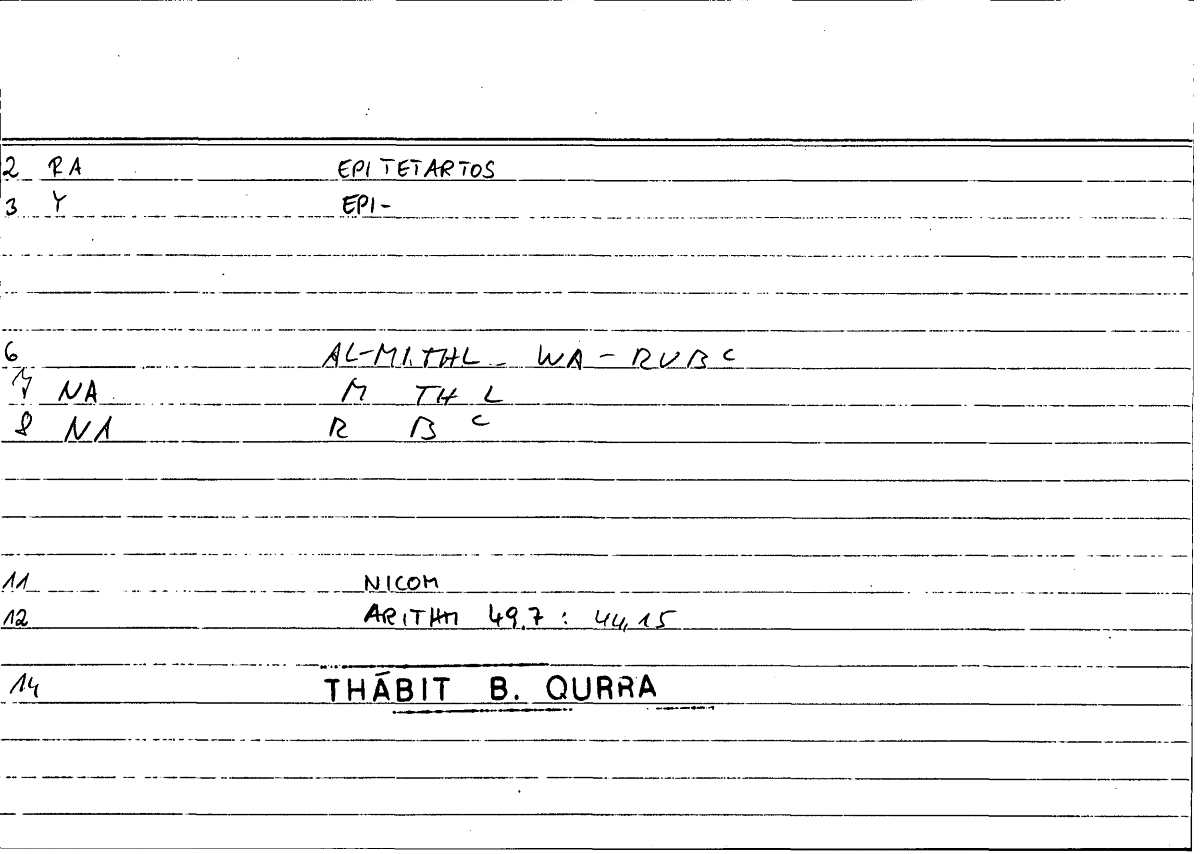 2 RA EPITETARTOS
3 Y EPI-
6 AL-MITHL WA-RUBC
7 NA M TH L
8 NA R B C
11 NICOM
12 ARITHM 49,7 : 44,15
14 THĀBIT B. QURRA